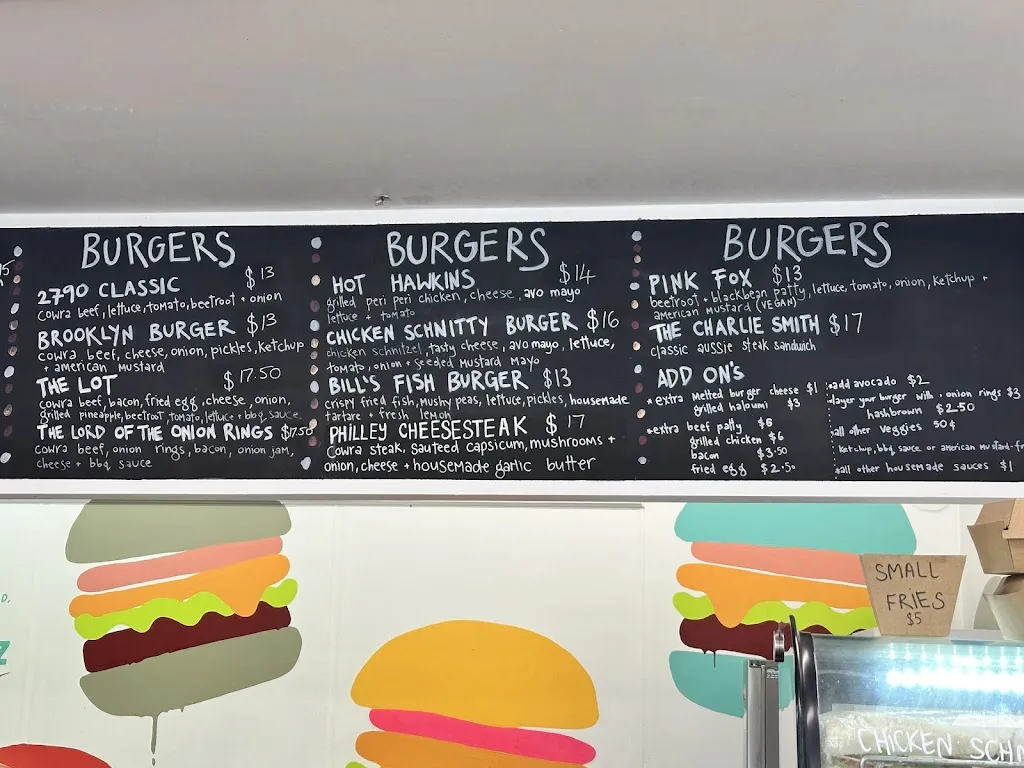 BURGERS
2790 CLASSIC $13
Cowra beef, lettuce, tomato, beetroot + onion
BROOKLYN BURGER $13
cowra beef, cheese, onion, pickles, ketchup
+ american mustard
THE LOT $17.50
cowra beef, bacon, fried egg, cheese, onion,
grilled pineapple, beetroot, tomato, lettuce + bbq sauce
THE LORD OF THE ONION RINGS $17.50
cowra beef, onion rings, bacon, onion jam,
cheese + bbq sauce
BURGERS
HOT HAWKINS $14
grilled peri peri chicken, cheese, avo mayo
lettuce + tomato
CHICKEN SCHNITTY BURGER $16
chicken schnitzel, tasty cheese, avo mayo, lettuce,
tomato, onion + seeded mustard mayo
BILL'S FISH BURGER $13
crispy fried fish, mushy peas, lettuce, pickles, housemade
tartare + fresh lemon
PHILLEY CHEESESTEAK $17
Cowra steak, sauteed capsicum, mushrooms +
onion, cheese + housemade garlic butter
BURGERS
PINK FOX $13
beetroot + blackbean patty, lettuce, tomato, onion, ketchup +
american mustard (VEGAN)
THE CHARLIE SMITH $17
classic aussie steak sandwich
ADD ON'S
*extra melted burger cheese $1
grilled haloumi $3
*extra beef patty $6
grilled chicken $6
bacon $3.50
fried egg $2.50
add avocado $2
layer your burger with onion rings $3
hashbrown $2.50
all other veggies 50¢
ketchup, bbq sauce or american mustard-fr
all other housemade sauces $1
SMALL
FRIES
$5
CHICKEN SCHN